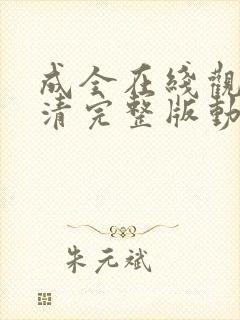 成全在綫觀
清完整版動
朱元斌